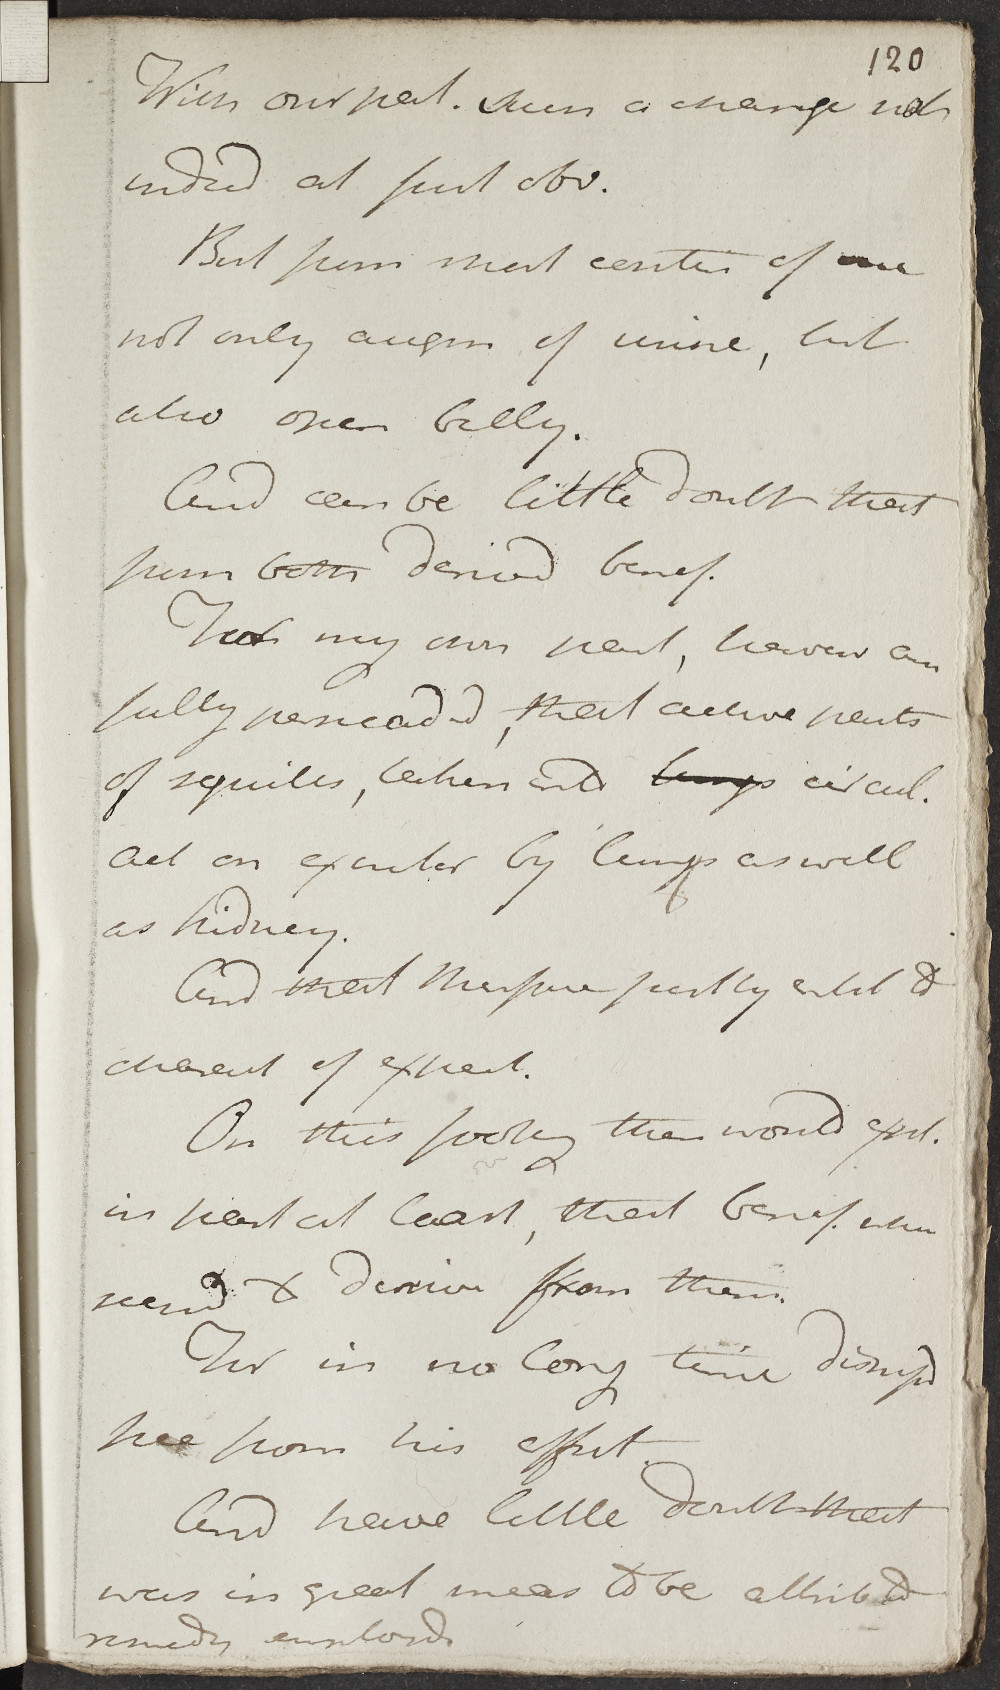 120
With our pat. such a change not
indeed at first obv.
But from most certain of
not only augm of urine, but
also open belly.
And can be little doubt that
from both derived benef.
For my own part, however am
fully persuaded, that active parts
of squills, taken into lungs circul.
act on exhaler by lungs as well
as kidney.
And that therefore justly entit to
charact of expect.
On this footing then would expl.
in part at least, that benef. when
seem'd to derive from them.
For in no long time
free from his
And have little doubt that
was in great meas to be attrib to
remedy employd